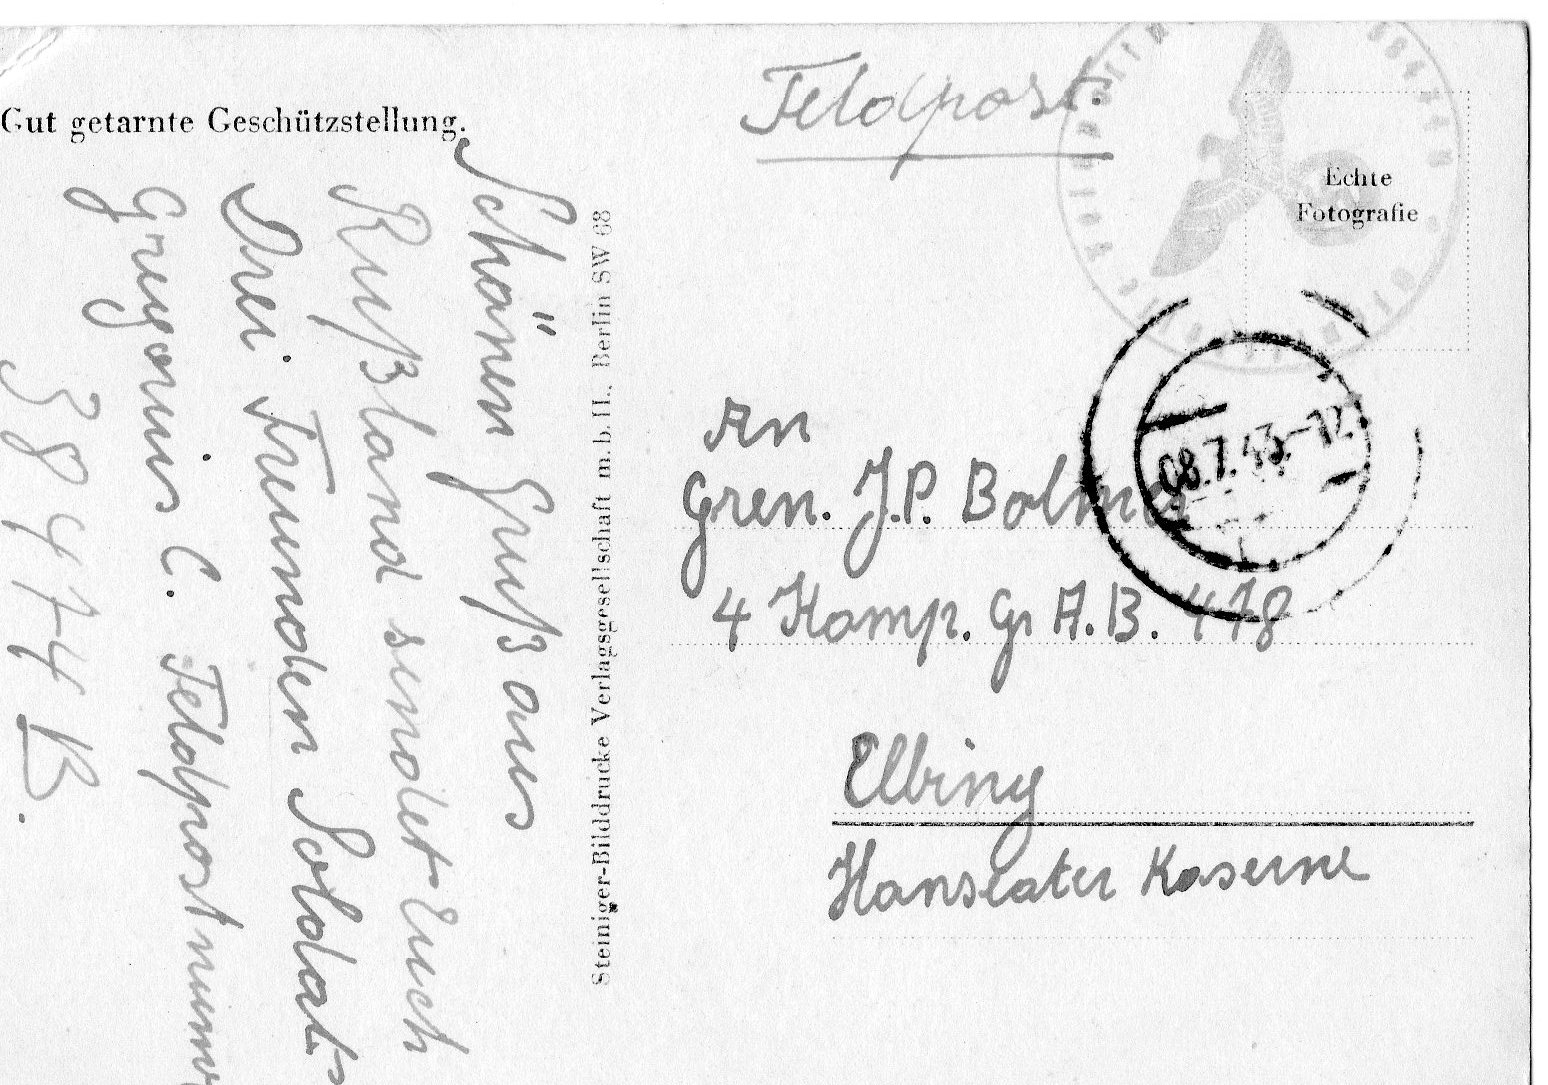 Gut getarnte Geschützstellung.
Schönen Gruß aus
Rußland sendet Euch
Drei Freunden Soldat
Gregorius C. Feldpostnum
38474 B.
Steiniger-Bilddrucke Verlagsgesellschaft m.b.H., Berlin SW 68
Feldpost.
Echte
Fotografie
08.7.43.-12
An
Gren. J.P. Bolmer
4 Komp. Gr A.B. 478
Elbing
Hanseaten Kaserne